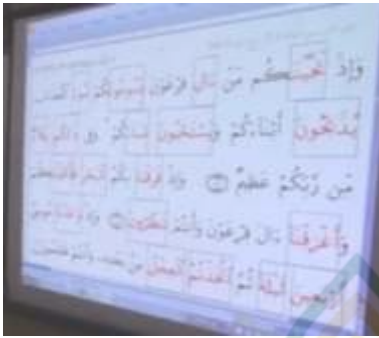 وَإِذْ نَجَّيْنَـٰكُم مِّنْ ءَالِ فِرْعَوْنَ يَسُومُونَكُمْ سُوٓءَ ٱلْعَذَابِ
يُذَبِّحُونَ أَبْنَآءَكُمْ وَيَسْتَحْيُونَ نِسَآءَكُمْ ۚ وَفِى ذَٰلِكُم بَلَآءٌ
مِّن رَّبِّكُمْ عَظِيمٌ وَإِذْ فَرَقْنَا بِكُمُ ٱلْبَحْرَ فَأَنجَيْنَـٰكُمْ
وَأَغْرَقْنَآ ءَالَ فِرْعَوْنَ وَأَنتُمْ تَنظُرُونَ وَإِذْ وَٰعَدْنَا مُوسَىٰٓ
أَرْبَعِينَ لَيْلَةً ثُمَّ ٱتَّخَذْتُمُ ٱلْعِجْلَ مِنۢ بَعْدِهِۦ وَأَنتُمْ ظَـٰلِمُونَ